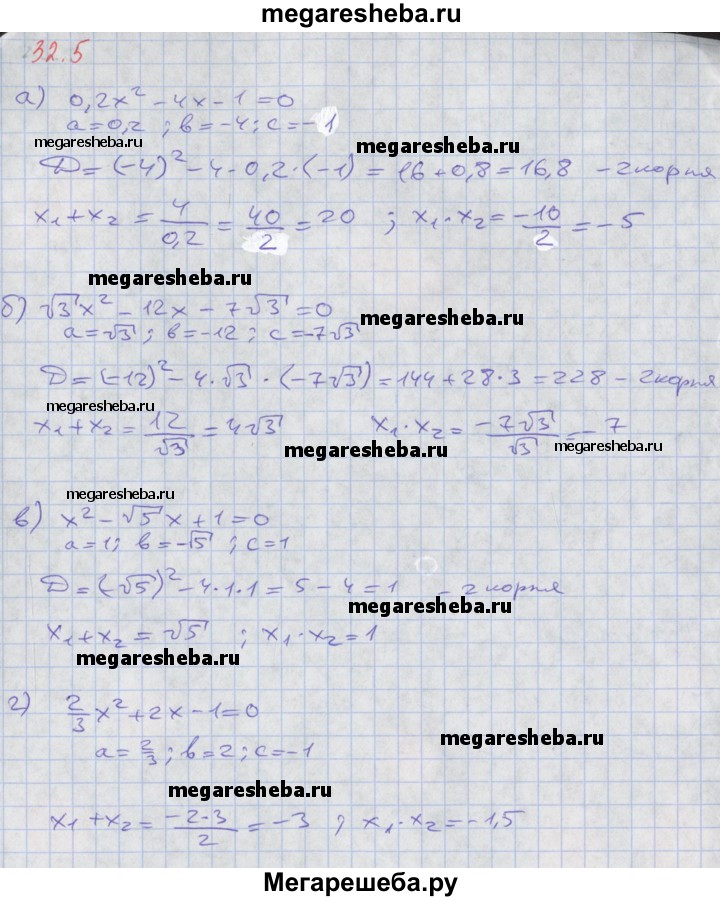 megaresheba.ru
32.5
а) 0,2x² - 4x - 1 = 0
a = 0,2 ; в = -4 ; c = -1
megaresheba.ru
megaresheba.ru
D = (-4)² - 4·0,2·(-1) = 16 + 0,8 = 16,8 - 2 корня
x₁ + x₂ = 4/0,2 = 40/2 = 20 ; x₁·x₂ = -10/2 = -5
megaresheba.ru
б) √3x² - 12x - 7√3 = 0
megaresheba.ru
a = √3 ; в = -12 ; c = -7√3
D = (-12)² - 4·√3·(-7√3) = 144 + 28·3 = 228 - 2 корня
megaresheba.ru
x₁ + x₂ = 12/√3 = 4√3 x₁·x₂ = -7√3/√3 = -7
megaresheba.ru
megaresheba.ru
megaresheba.ru
в) x² - √5x + 1 = 0
a = 1; в = -√5 ; c = 1
D = (-√5)² - 4·1·1 = 5 - 4 = 1 - 2 корня
megaresheba.ru
x₁ + x₂ = √5 ; x₁·x₂ = 1
megaresheba.ru
г) 2/3x² + 2x - 1 = 0
megaresheba.ru
a = 2/3 ; в = 2 ; c = -1
megaresheba.ru
x₁ + x₂ = -2·3/2 = -3 ; x₁·x₂ = -1,5
Мегарешеба.ру